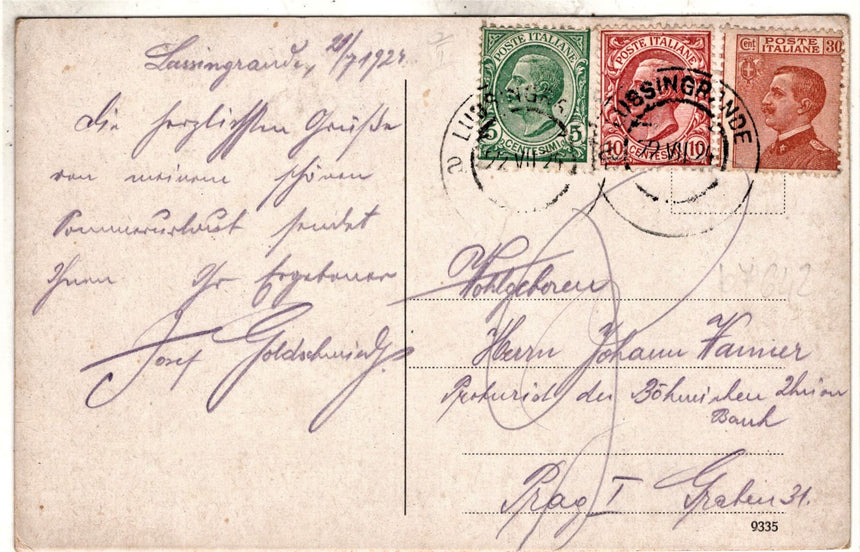 Lussingrande, 21/7 1924
Die herzlichsten Grüße
von meinem schönen
Sommerurlaub sendet
Ihnen Ihr Ergebener
Josef Goldschmied
POSTE ITALIANE
5 5
CENTESIMI
POSTE ITALIANE
10 10
CENTESIMI
Cent POSTE 30
ITALIANE
LUSSINGRANDE
LUSSINGRANDE
Wohlgeboren
Herrn Johann Wanner
Prokurist der Böhmischen Union
Bank
Prag I Graben 31.
9335